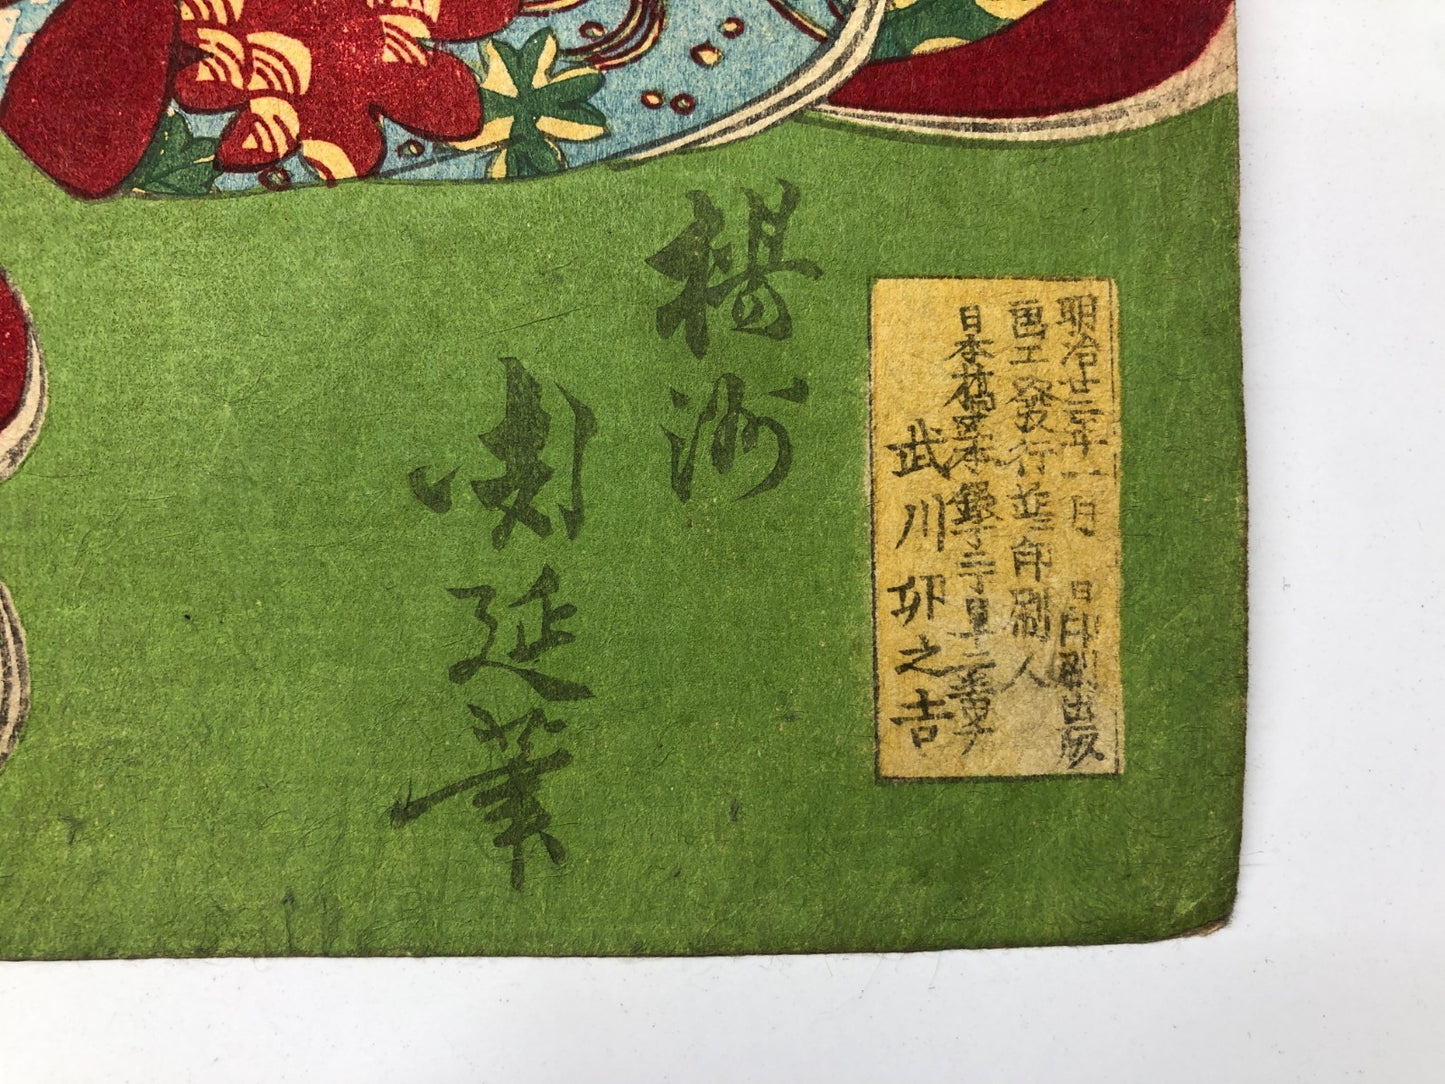 明治廿二年一月 日印刷出版
画工発行並ニ印刷人
日本橋区本銀丁二丁目十二番チ
武川卯之吉
楊洲
周延筆